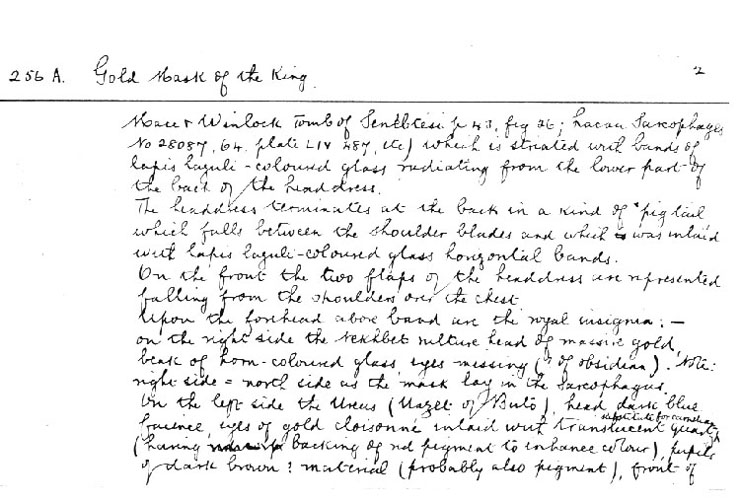 256 A. Gold Mask of the King. 2
Mace & Winlock Tomb of Senebtesi p 43, fig 26; Lacau Sarcophages
No 28087, 64, plate LIV 487, etc) which is striated with bands of
lapis lazuli-coloured glass radiating from the lower part of
the back of the headdress.
The headdress terminates at the back in a kind of "pigtail
which falls between the shoulder blades and which was inlaid
with lapis lazuli-coloured glass horizontal bands.
On the front the two flaps of the headdress are represented
falling from the shoulders over the chest
Upon the forehead above band are the royal insignia: —
on the right side the Nekhbet vulture head of massive gold,
beak of horn-coloured glass, eyes missing (? of obsidian). Note:
right side = north side as the mask lay in the Sarcophagus,
On the left side the Uraeus (Uazet of Buto), head dark blue
faience, eyes of gold cloisonné inlaid with translucent quartz
substitute for
(having backing of red pigment to enhance colour), pupils
of dark brown ? material (probably also pigment), front of